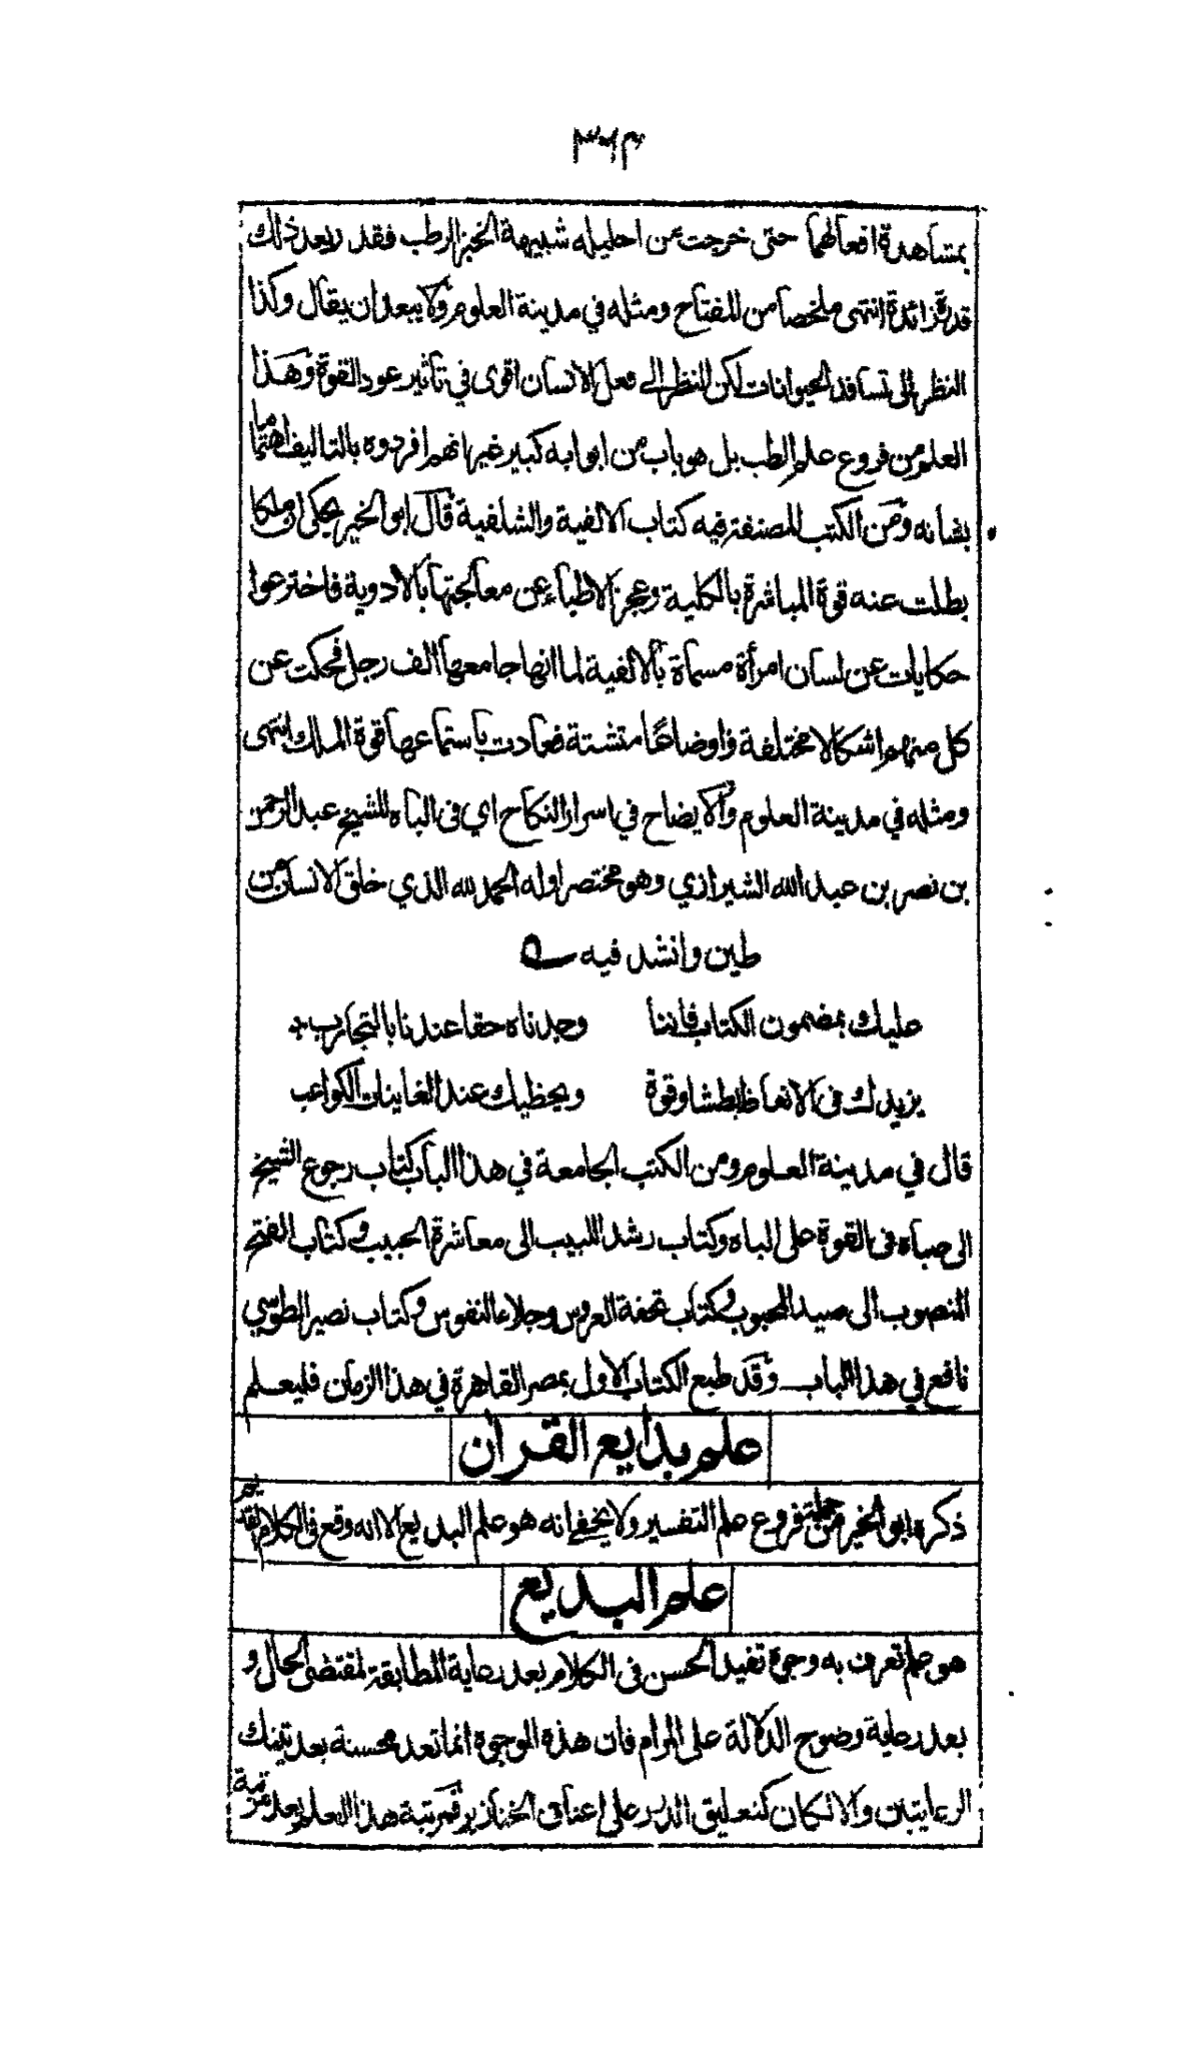 ٣٦٣
بمشاهدة افعالهما حتى خرجت من احليله شبيهة الخبز الرطب فقد ربعد ذلك
قدرة زائدة انتهى ملخصا من المفتاح ومثله في مدينة العلوم ولا يبعد ان يقال وكذا
النظر الى تسافد الحيوانات لكن النظر الى فعل الانسان اقوى في تاثير عود القوة وهذا
العلم من فروع علم الطب بل هو باب من ابوابه كبير غير انهم افردوه بالتاليف اهتماما
بشأنه ومن الكتب المصنفة فيه كتاب الالفية والشلفية قال ابو الخير يحكى ان ملكا
بطلت عنه قوة المباشرة بالكلية وعجز الاطباء عن معالجتها بالادوية فاخترعوا
حكايات عن لسان امرأة مسماة بالالفية لما انها جامعها الف رجل فحكت عن
كل منهم اشكالا مختلفة واوضاعا متشتتة فعادت باستماعها قوة الملك انتهى
ومثله في مدينة العلوم والايضاح في اسرار النكاح اي فى الباه للشيخ عبد الرحمن
بن نصر بن عبد الله الشيرازي وهو مختصر اوله الحمد لله الذي خلق الانسان من
طين وانشد فيه
عليك بمضمون الكتاب فاننا وجدناه حقا عندنا بالتجارب
يزيدك فى الانعاظ بطشا وقوة ويحظيك عند الغانيات الكواعب
قال في مدينة العلوم ومن الكتب الجامعة في هذا الباب كتاب رجوع الشيخ
الى صباه فى القوة على الباه وكتاب رشد اللبيب الى معاشرة الحبيب وكتاب الفتح
المنصوب الى صيد المحبوب وكتاب تحفة العروس وجلاء النفوس وكتاب نصير الطوسي
نافع في هذا الباب وقد طبع الكتاب الاول بمصر القاهرة في هذا الزمان فليعلم
علم بدايع القرآن
ذكره ابو الخير من جملة فروع علم التفسير ولا يخفى انه هو علم البديع الا انه وقع فى الكلام القديم
علم البديع
هو علم تعرف به وجوه تفيد الحسن فى الكلام بعد رعاية المطابقة لمقتضى الحال و
بعد رعاية وضوح الدلالة على المرام فان هذه الوجوه انما تعد محسنة بعد تينك
الرعايتين والا لكان كتعليق الدرر على اعناق الخنازير فمرتبة هذا العلم بعد مرتبة